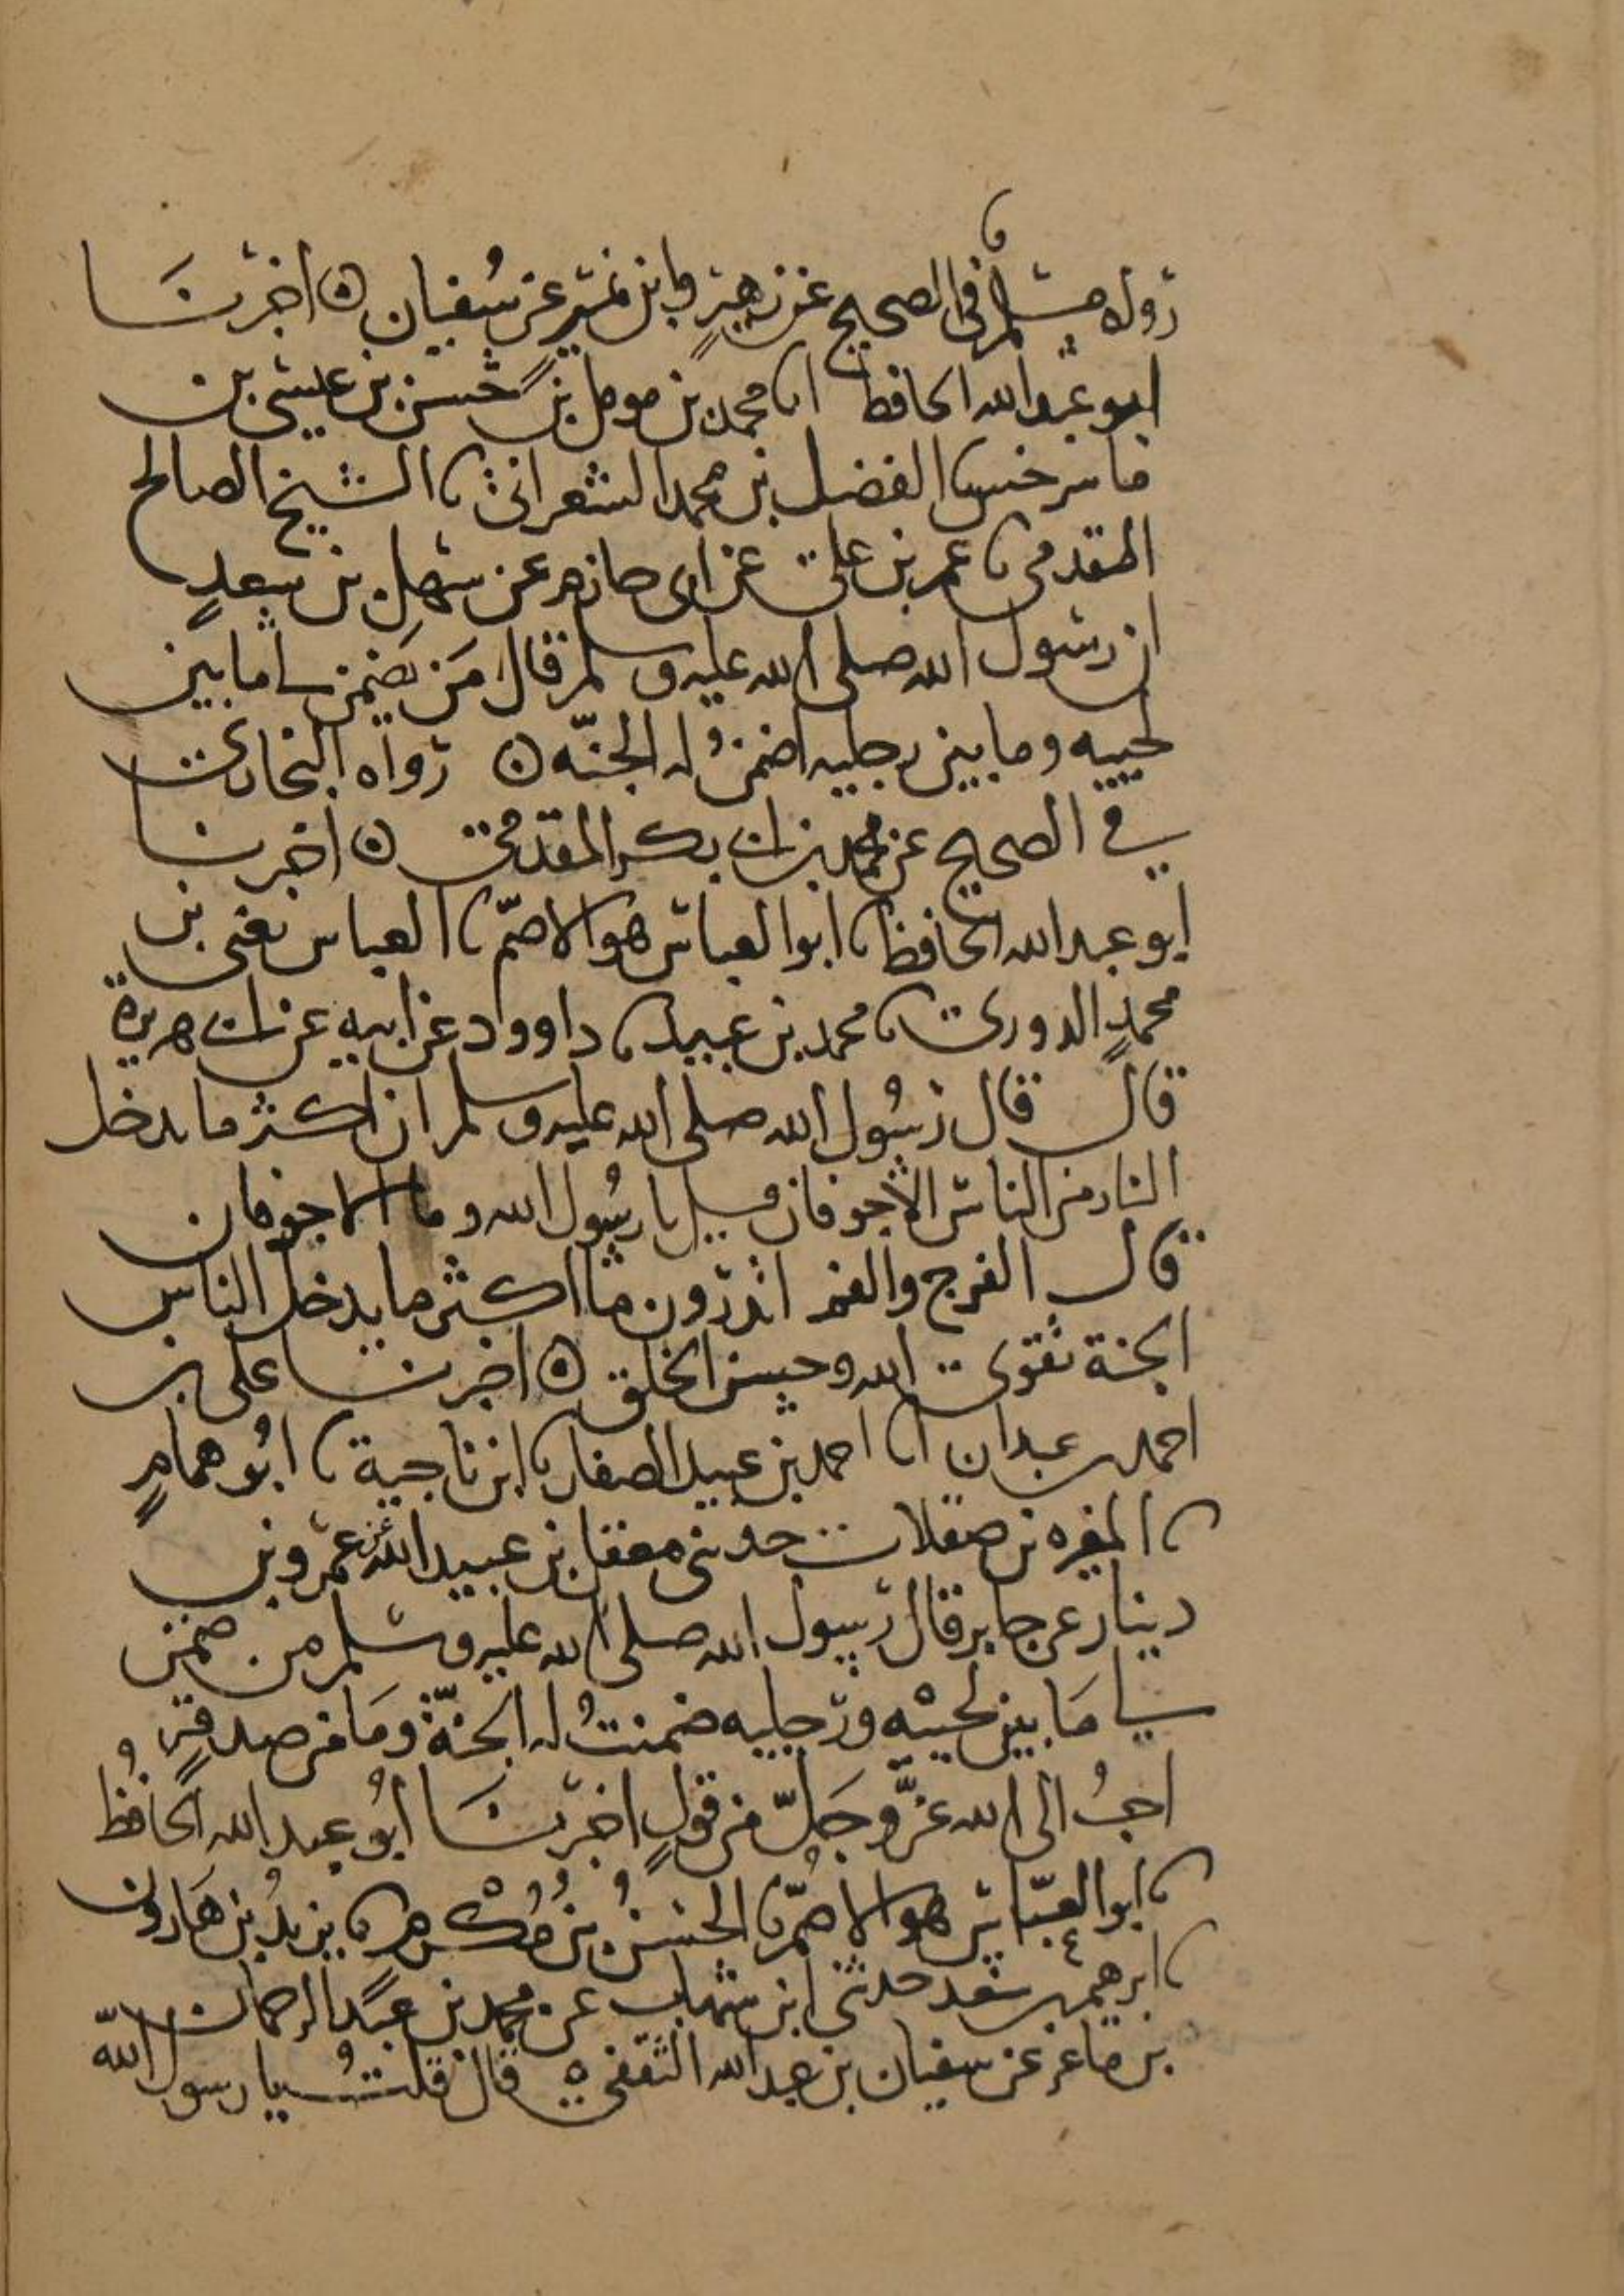 رواه مسلم في الصحيح عن زهير وابن نمير عن سفيان ه اخبرنا
ابو عبد الله الحافظ انا محمد بن مومل بن حسن بن عيسى بن
ماسرخس نا الفضل بن محمد الشعراني نا الشيخ الصالح
المقدمي نا عمر بن علي عن ابي حازم عن سهل بن سعد
ان رسول الله صلى الله عليه وسلم قال من يضمن لي ما بين
لحييه وما بين رجليه اضمن له الجنة ه رواه البخاري
في الصحيح عن محمد بن ابي بكر المقدمي ه اخبرنا
ابو عبد الله الحافظ نا ابو العباس هو الاصم نا العباس يعني بن
محمد الدوري نا محمد بن عبيد نا داوود عن ابيه عن ابي هريرة
قال قال رسول الله صلى الله عليه وسلم ان اكثر ما يدخل
النار من الناس الاجوفان قيل يا رسول الله وما الاجوفان
قال الفرج والفم اتدرون ما اكثر ما يدخل الناس
الجنة تقوى الله وحسن الخلق ه اخبرنا على بن
احمد بن عبدان انا احمد بن عبيد الصفار نا ابن ناجية نا ابو همام
نا المغيره بن صقلاب حدثني معقل بن عبيد الله عن عمرو بن
دينار عن جابر قال رسول الله صلى الله عليه وسلم من ضمن
لي ما بين لحييه ورجليه ضمنت له الجنة وما من صدقة
احب الى الله عز وجل من قول اخبرنا ابو عبد الله الحافظ
نا ابو العباس هو الاصم نا الحسن بن مكرم نا يزيد بن هارون
نا ابرهيم بن سعد حدثني ابن شهاب عن محمد بن عبد الرحمان
بن ماعز عن سفيان بن عبد الله الثقفي ه قال قلت يا رسول الله